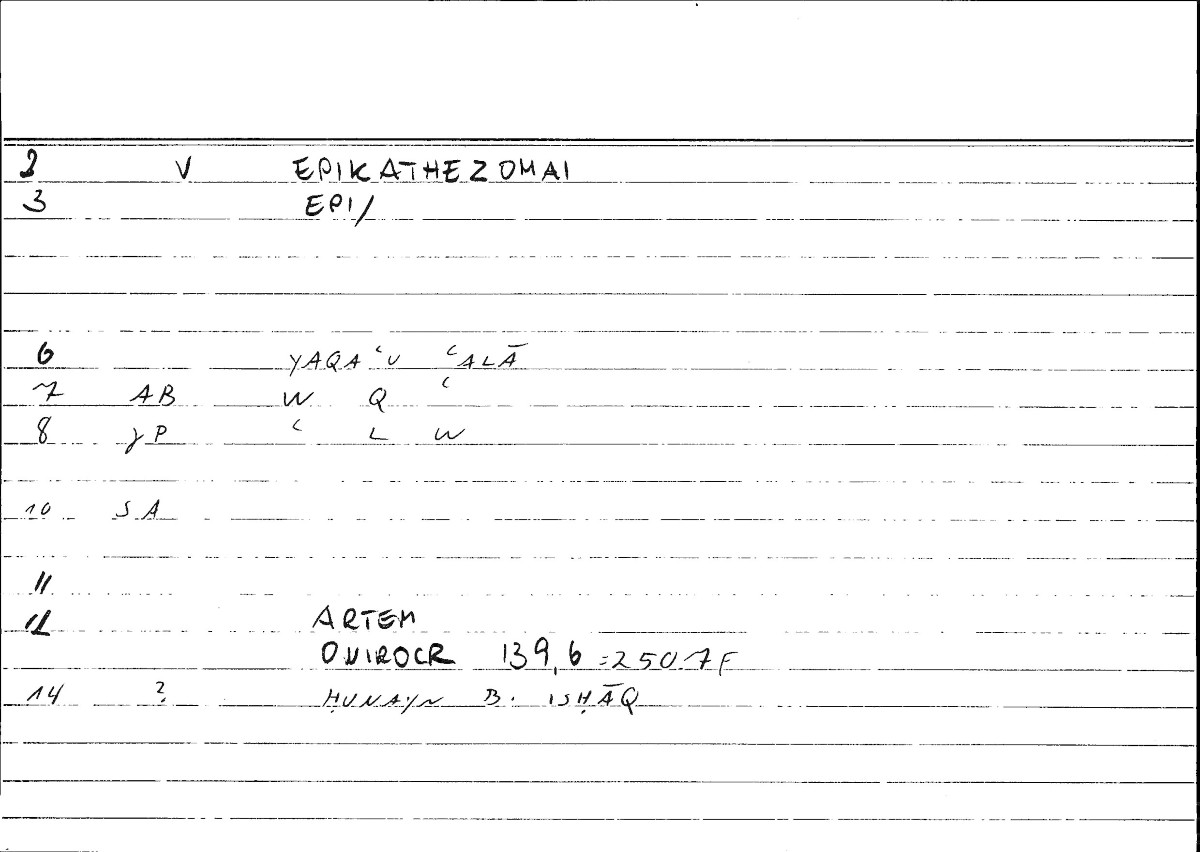 2 V EPIKATHEZOMAI
3 EPI/
6 YAQAʿU ʿALĀ
7 AB W Q ʿ
8 γP ʿ L W
10 SA
11
12 ARTEM
ONIROCR 139,6 =250.7F
14 ? ḤUNAYN B. ISḤĀQ